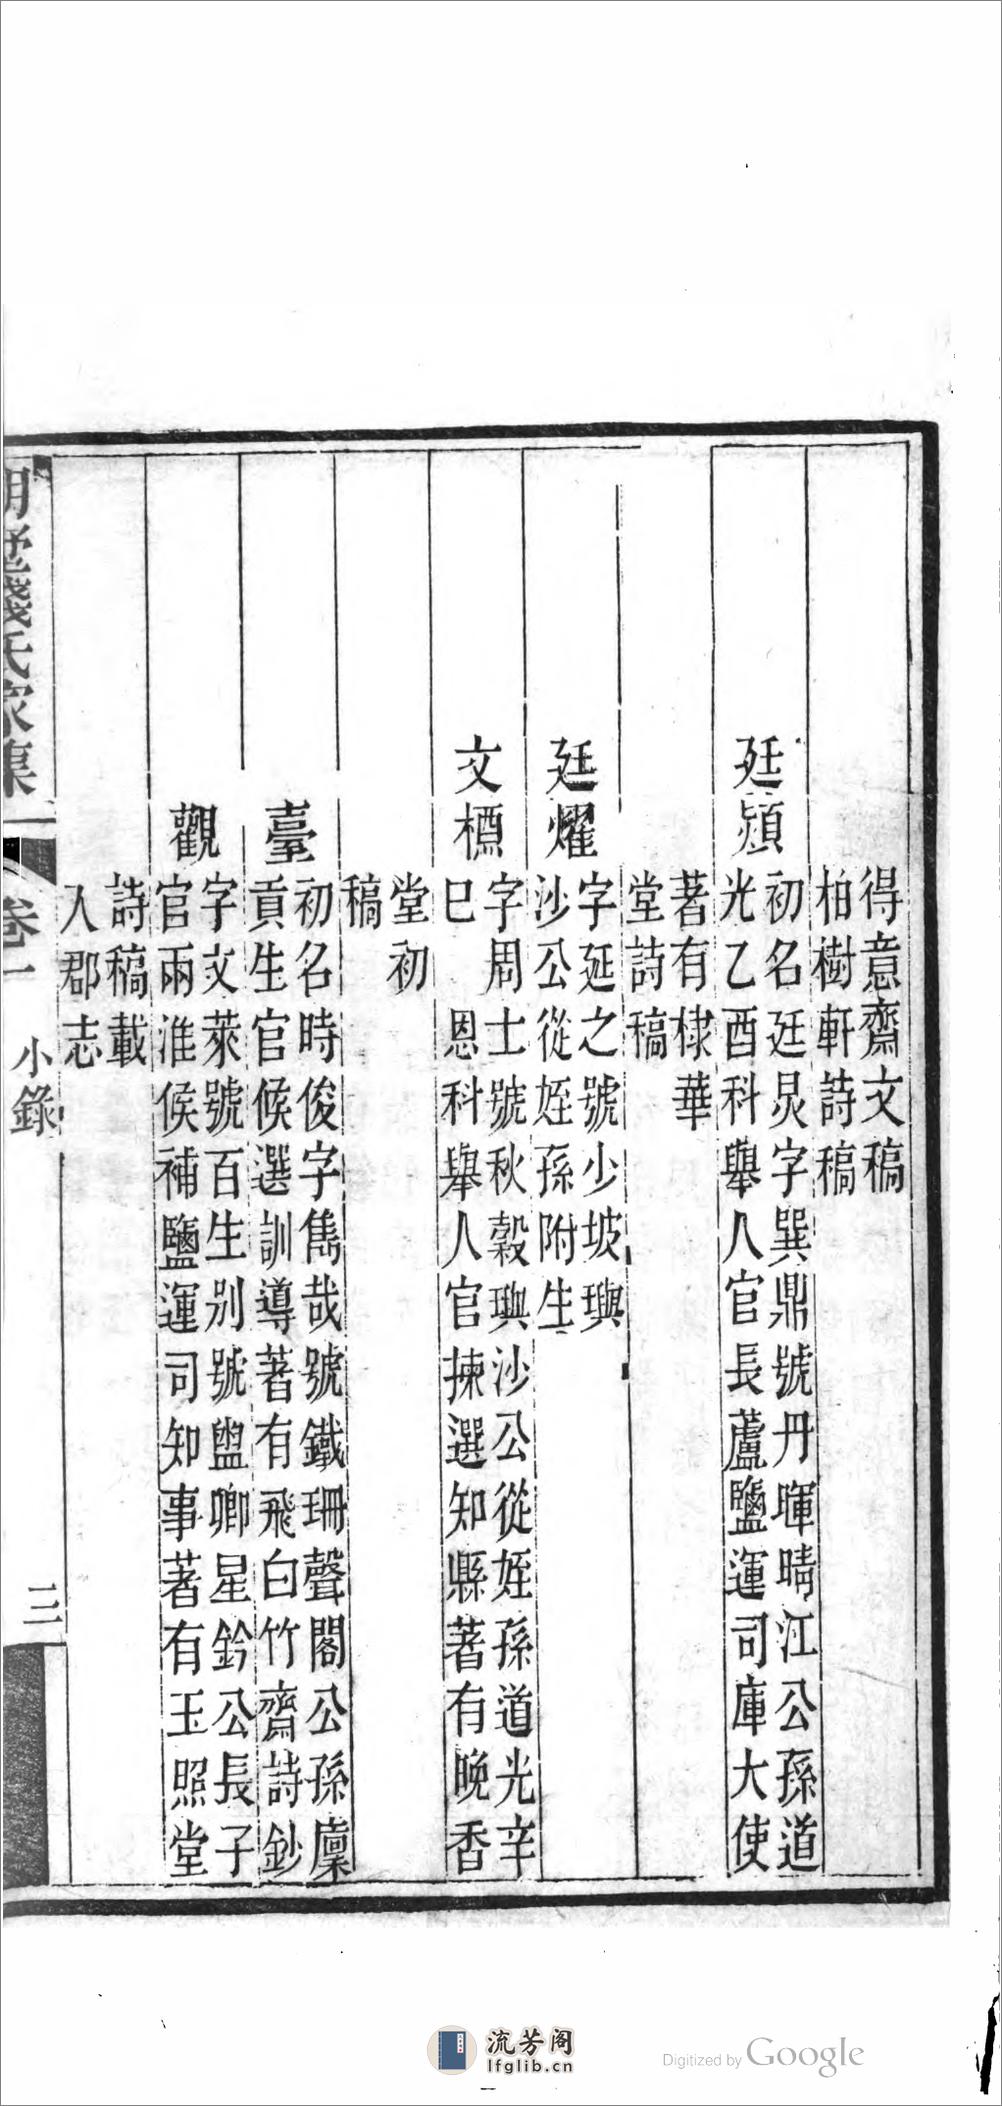 得意齋文稿
柏樹軒詩稿
廷熲
初名廷炅字巽鼎號丹暉晴江公孫道
光乙酉科舉人官長蘆鹽運司庫大使
著有棣華
堂詩稿
廷燿
字延之號少坡璵
沙公從姪孫附生
文槱
字周士號秋穀璵沙公從姪孫道光辛
巳 恩科舉人官揀選知縣著有晚香
堂初
稿
臺
初名時俊字雋哉號鐵珊聲閣公孫廩
貢生官候選訓導著有飛白竹齋詩鈔
觀
字文萊號百生別號盥卿星鈐公長子
官兩淮候補鹽運司知事著有玉照堂
詩稿載
入郡志
錢氏家集
卷一
小錄
三
流芳阁
lfglib.cn
Digitized by Google